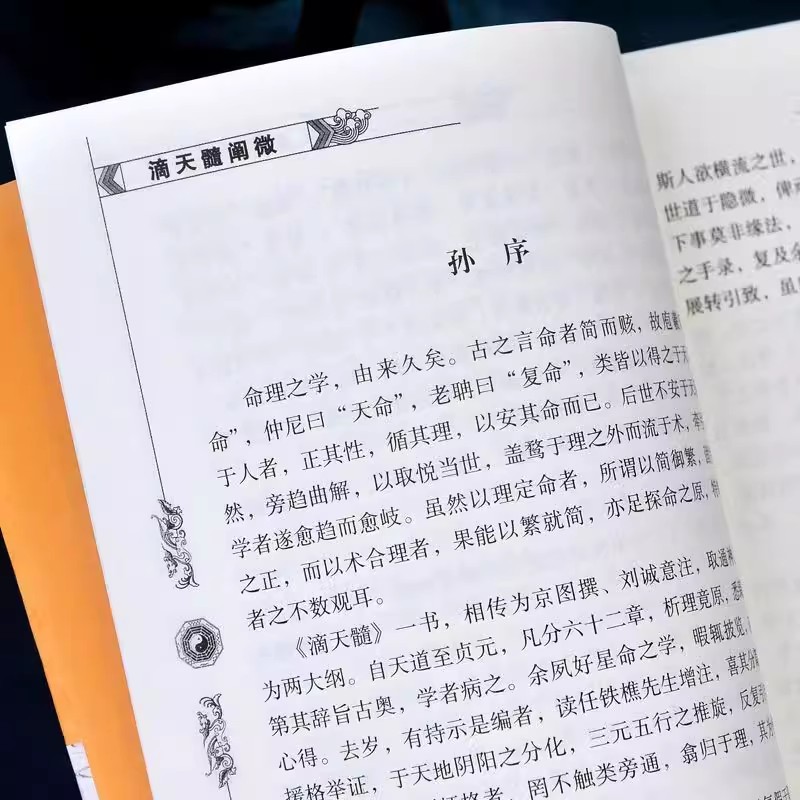 滴天髓阐微
孙 序
命理之学，由来久矣。古之言命者简而赅，故庖羲
命”，仲尼曰“天命”，老聃曰“复命”，类皆以得之于天
于人者，正其性，循其理，以安其命而已。后世不安于
然，旁趋曲解，以取悦当世，盖鹜于理之外而流于术，牵
学者遂愈趋而愈歧。虽然以理定命者，所谓以简御繁，
之正，而以术合理者，果能以繁就简，亦足探命之原，
者之不数观耳。
《滴天髓》一书，相传为京图撰、刘诚意注，取通神
为两大纲。自天道至贞元，凡分六十二章，析理竟原，悉
第其辞旨古奥，学者病之。余夙好星命之学，暇辄披览，
心得。去岁，有持示是编者，读任铁樵先生增注，喜其分
援格举证，于天地阴阳之分化，三元五行之推旋，反复引
格者，罔不触类旁通，翕归于理，其为
斯人欲横流之世，
世道于隐微，俾
下事莫非缘法，
之手录，复及余
展转引致，虽